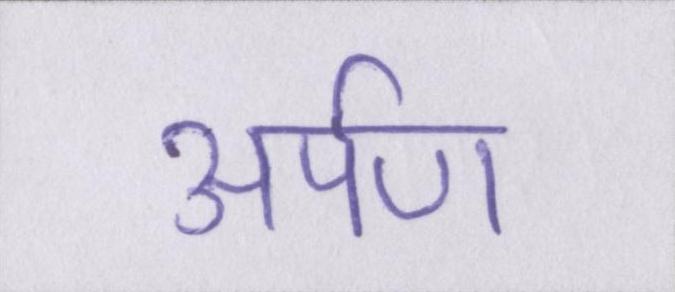 अर्पण